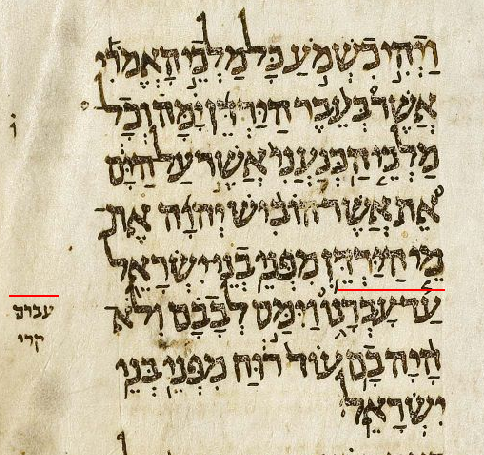 וַיְהִי כִשְׁמֹעַ כָּל מַלְכֵי הָאֱמֹרִי
אֲשֶׁר בְּעֵבֶר הַיַּרְדֵּן יָמָּה וְכָל
ו
מַלְכֵי הַכְּנַעֲנִי אֲשֶׁר עַל הַיָּם
אֵת אֲשֶׁר הוֹבִישׁ יְהוָה אֶת
מֵי הַיַּרְדֵּן מִפְּנֵי בְנֵי יִשְׂרָאֵל
עַד עָבְרָנוּ וַיִּמַּס לְבָבָם וְלֹא
עברם
קרי
הָיָה בָם עוֹד רוּחַ מִפְּנֵי בְּנֵי
יִשְׂרָאֵל